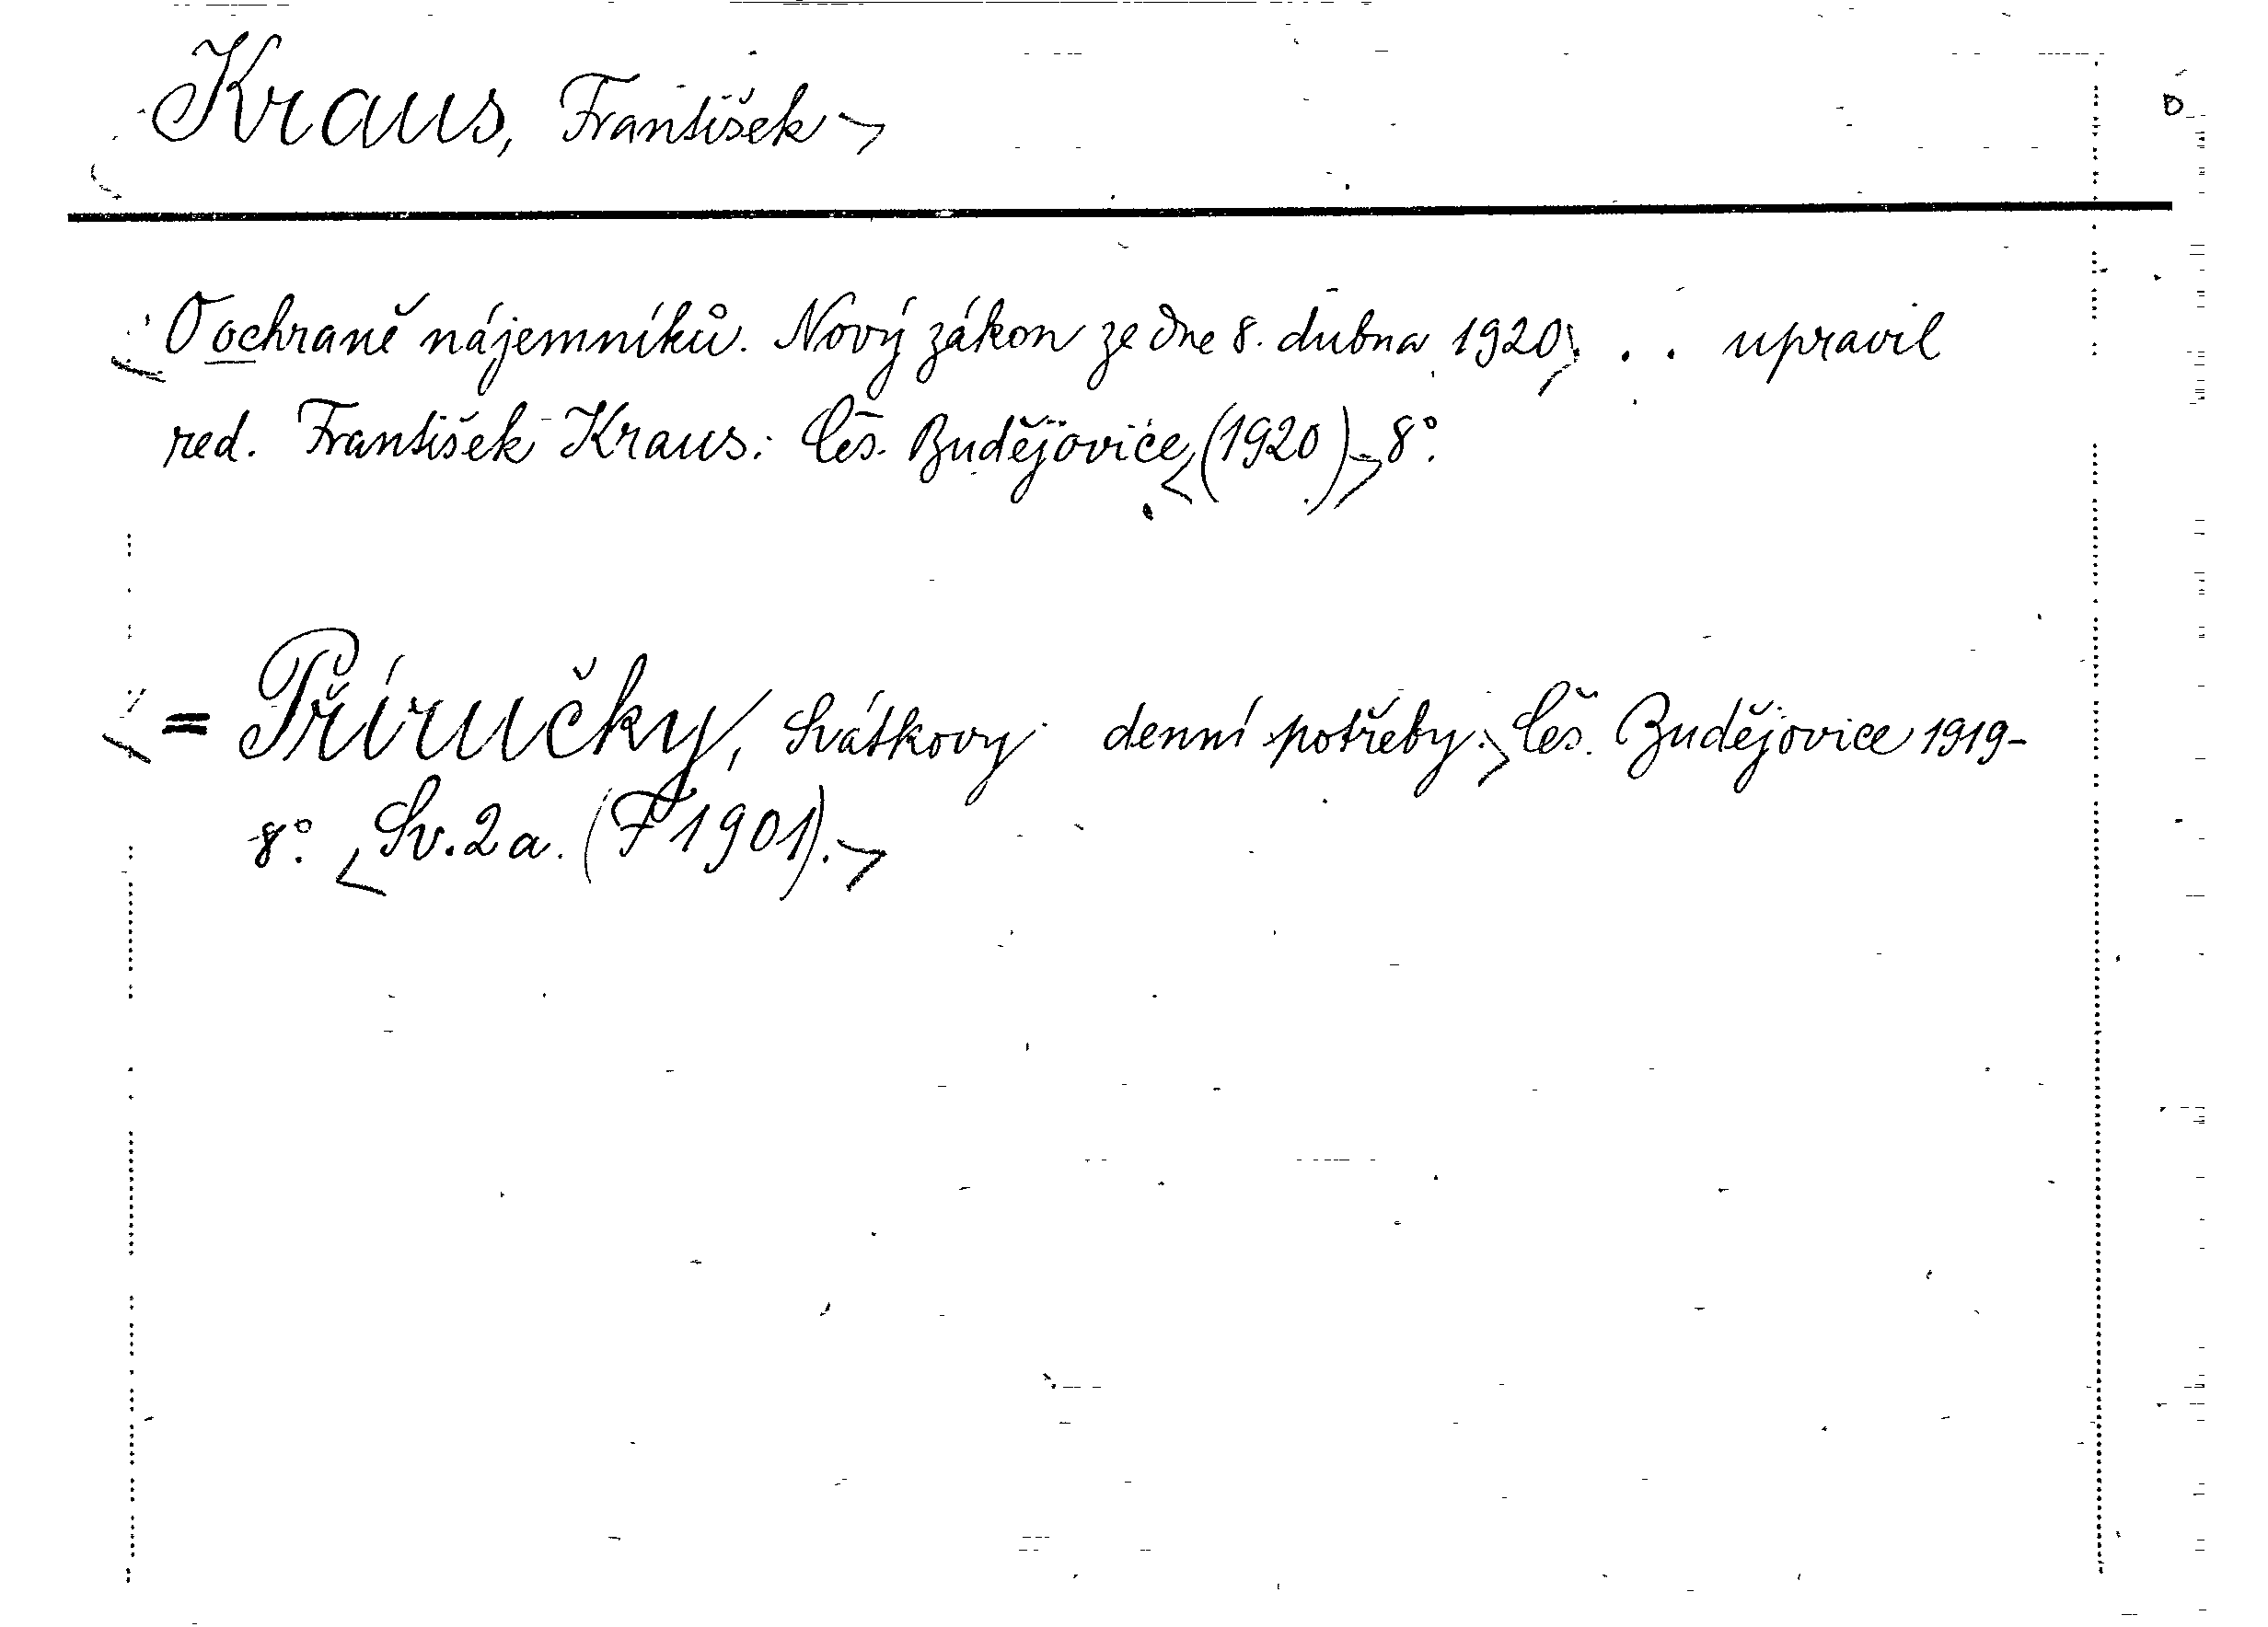 Kraus, František
O ochraně nájemníků. Nový zákon ze dne 8. dubna 1920, . . upravil
red. František Kraus. Čes. Budějovice (1920) 8°.
= Příručky, Svátkovy denní potřeby. Čes. Budějovice 1919-
8°. Sv. 2a. (F 1901).